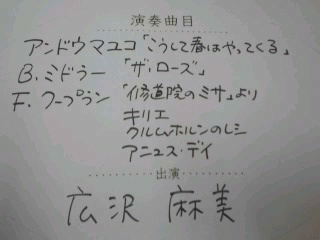 演奏曲目
アンドウマユコ「こうして春はやってくる」
B.ミドラー「ザ・ローズ」
F.クープラン「修道院のミサ」より
キリエ
クルムホルンのレシ
アニュス・デイ
出演
広沢 麻美